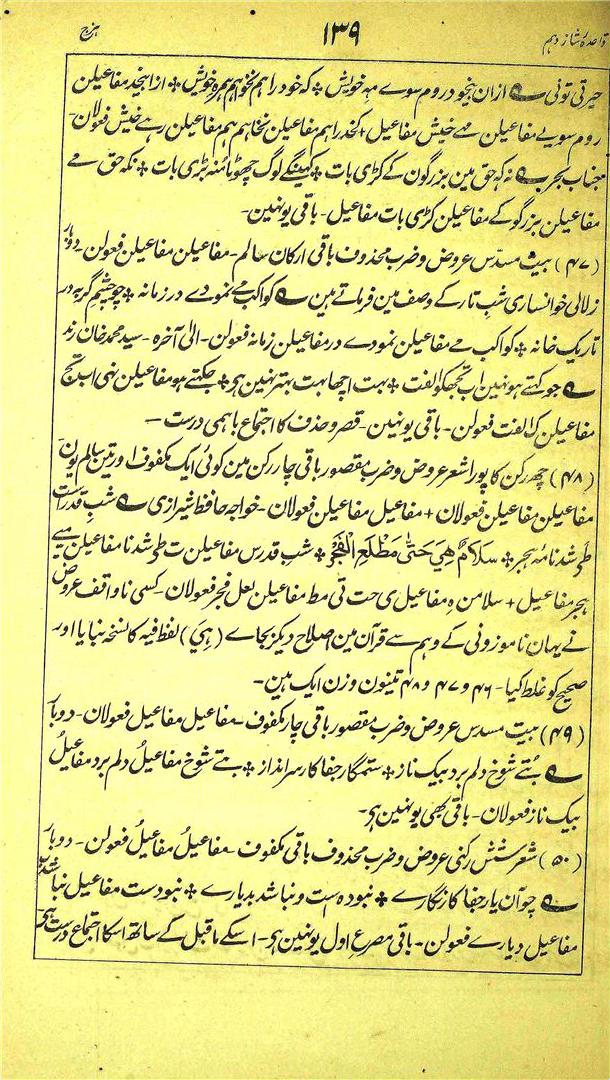 قاعدہ شانزدہم ۱۳۹ ہزج
حیرتی تونی ؎ ازان بیخود روم سوے مہ خویش * کہ خود را ہم نخواہم ہمرہ خویش * ازا بیخد مفاعیلن
روم سویے مفاعیلن مہے خیش مفاعیل + کخد را ہم مفاعیلن نخاہم ہم مفاعیلن رہے خیش فعولان۔
جناب بحر ؎ نہ کہ حق مین بزرگون کے کڑی بات * کہینگے لوگ چھوٹا منہ بڑی بات * نکہ حق مے
مفاعیلن بزرگو کے مفاعیلن کڑی بات مفاعیل۔ باقی یونہین۔
(۴۷) بیت مسدّس عروض و ضرب محذوف باقی ارکان سالم۔ مفاعیلن مفاعیلن فعولن۔ دوبار
زلالی خوانساری شب تار کے وصف مین فرماتے ہین ؎ کواکب مے نمودے در زمانہ * چو چشم گربہ در
تاریک خانہ * کواکب مے مفاعیلن نمودے در مفاعیلن زمانہ فعولن۔ الیٰ آخرہ۔ سید محمد خان رند
؎ جو کہتے ہو نہین اب تجھکو الفت * بہت اچھا بہت بہتر نہین ہی * جکہتے ہو مفاعیلن نہی اب تج
مفاعیلن ک الفت فعولن۔ باقی یونہین۔ قصر و حذف کا اجتماع باہمی درست۔
(۴۸) چھ رکن کا پورا شعر عروض و ضرب مقصور باقی چار رکن مین کوئی ایک مکفوف اور تین سالم یون
مفاعیلن مفاعیلن فعولان + مفاعیل مفاعیلن فعولان۔ خواجہ حافظ شیرازی ؎ شب قدر است
طے شد نامۂ ہجر * سَلَامٌ هِيَ حَتّٰى مَطْلَعِ الْفَجْرِ * شب قدرس مفاعیلن ت طے شد نا مفاعیلن میے
ہجر مفاعیل + سلامن ہ مفاعیل ی حت تی مط مفاعیلن لعل فجر فعولان۔ کسی ناواقف عروض
نے یہان ناموزونی کے وہم سے قرآن مین اصلاح دیکر بجاے (ہِیَ) لفظ فیہ کا نسخہ بنایا اور
صحیح کو غلط کیا۔ ۴۶ و ۴۷ و ۴۸ تینون وزن ایک ہین۔
(۴۹) بیت مسدس عروض و ضرب مقصور باقی چار مکفوف۔ مفاعیل مفاعیل فعولان۔ دوبار
؎ بُتے شوخ دلم برد بیک ناز * ستمگار جفا کار سرانداز * بتے شوخ مفاعیلُ دلم برد مفاعیلُ
بیک ناز فعولان۔ باقی بھی یونہین ہی۔
(۵۰) شعر شش رکنی عروض و ضرب محذوف باقی مکفوف۔ مفاعیلُ مفاعیلُ فعولن۔ دوبار
؎ چو آن یار جفا کار نگارے * نبودہ است و نباشد بدیارے * نبودست مفاعیل نباشد
مفاعیل دیارے فعولن۔ باقی مصرع اول یونہین ہی۔ اسکے ماقبل کے ساتھ اسکا اجتماع درست ہی